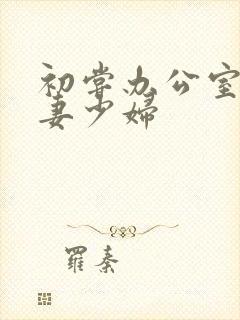 初尝办公室
妻少婦
羅秦